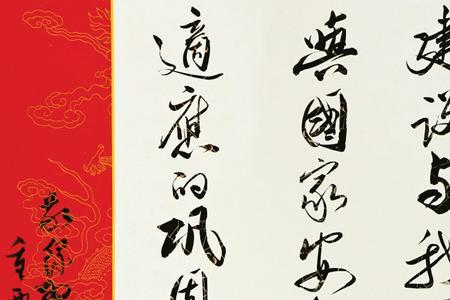 建设与我
與國家安
適應的巩固